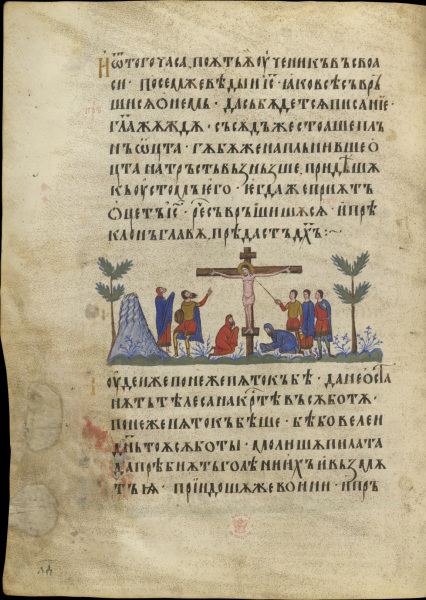 И ѿ того часа, поѧтъ ѭ оученикъ въ своа
си · посемже вѣды и҃с · ꙗко всѣ съврь
шишѧ ѡ немь · да сьбѫдетсѧ писанїе ·
г҃ла жѧждѫ · съсѫдь же стоаше пль
нъ ѡцта · гѫбѫ же напльнивше ѡ
цта на тръсть възньзше, придѣшѫ
къ оустомъ его · егда же приѧтъ
оцетъ і҃с · рече съвръшишѧсѧ · и прѣ
клонъ главѫ, прѣдастъ д҃хъ :~
Оудеи же понеже пѧтокъ бѣ · да не оста
нѫтъ тѣлеса на кр҃тѣ въ сѫботѫ ·
понеже пѧтокъ бѣше · бѣ бо велеи
д҃нь тоѫ сѫботы · молишѫ пилата
да прѣбиѧтъ голѣни ихъ и възмѫ
тъ ѧ · прїидошѫ же вои ни · и прѣ